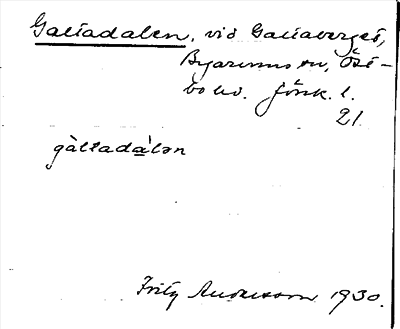 Galtadalen, vid Galtaberget,
Byarums sn, Öst-
bo hd. Jönk. l.
21
gàltadàlən
Fritz Andersson 1930.